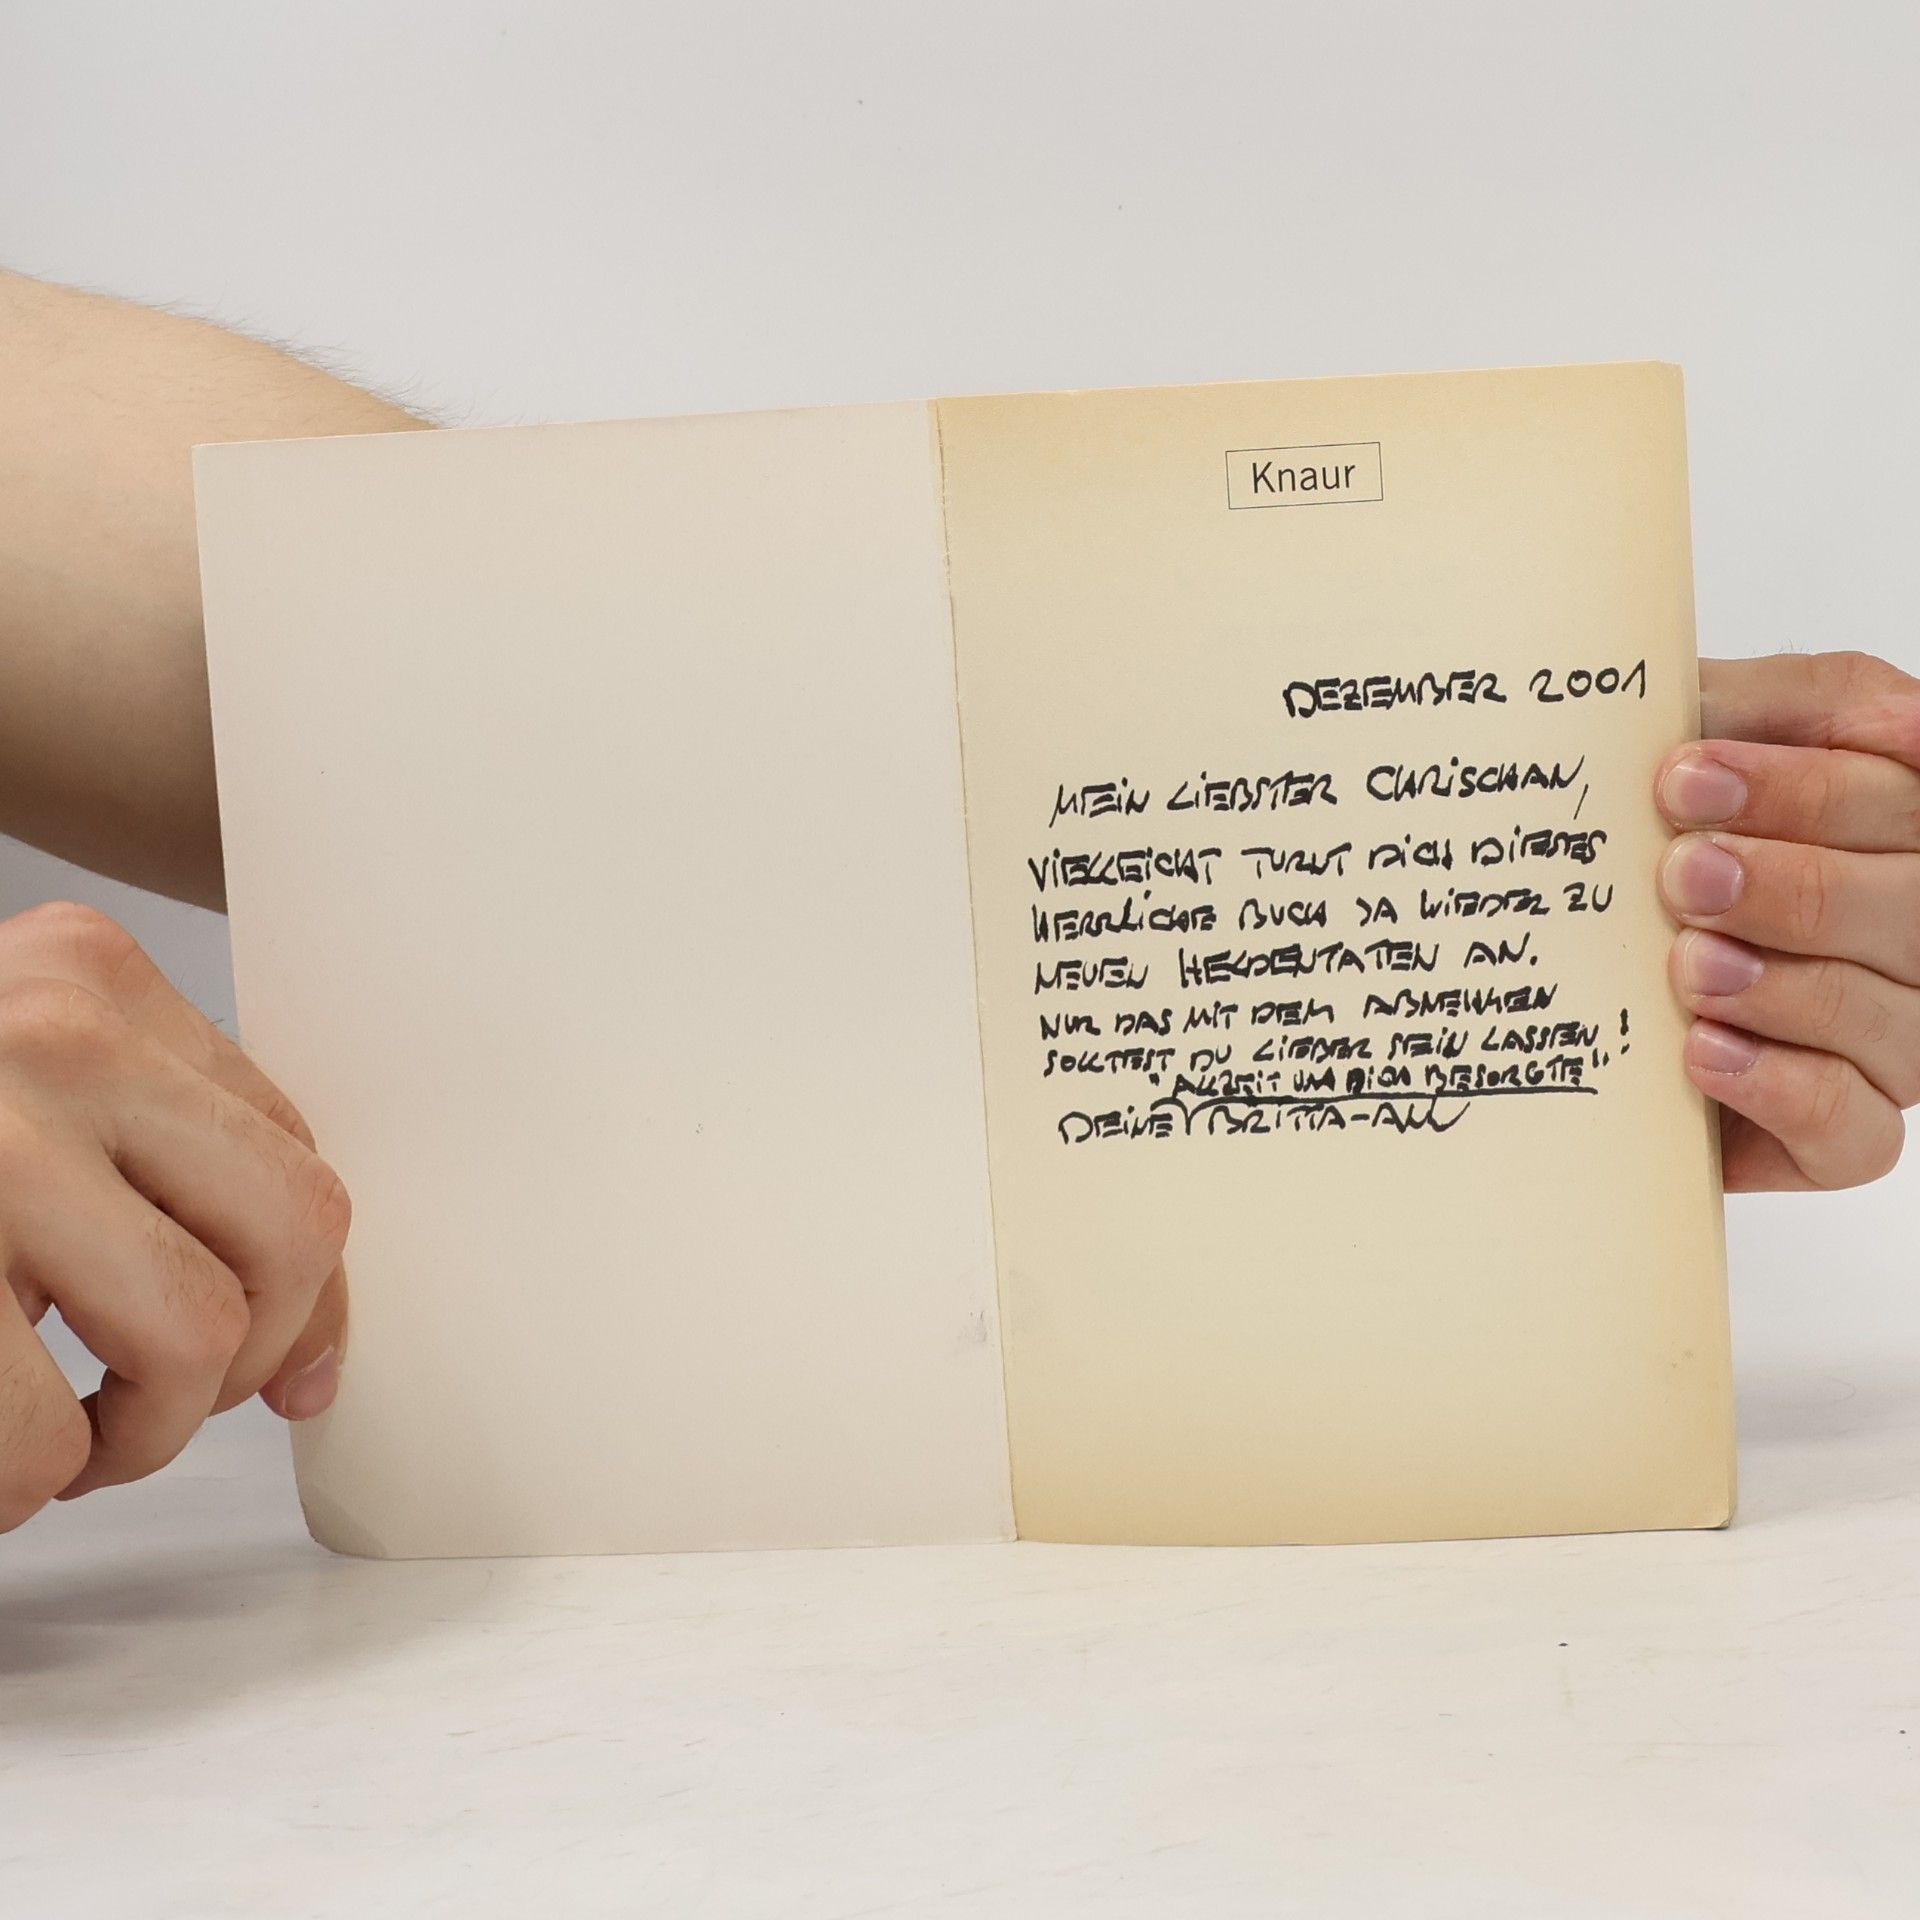 Knaur
DEZEMBER 2001
MEIN LIEBSTER CHRISCHAN,
VIELLEICHT TURNT DICH DIESES
HERRLICHE BUCH JA WIEDER ZU
NEUEN HELDENTATEN AN.
NUR DAS MIT DEM ABNEHMEN
SOLLTEST DU LIEBER SEIN LASSEN!
"ALLZEIT UM DICH BESORGTE"
DEINE BRITTA-